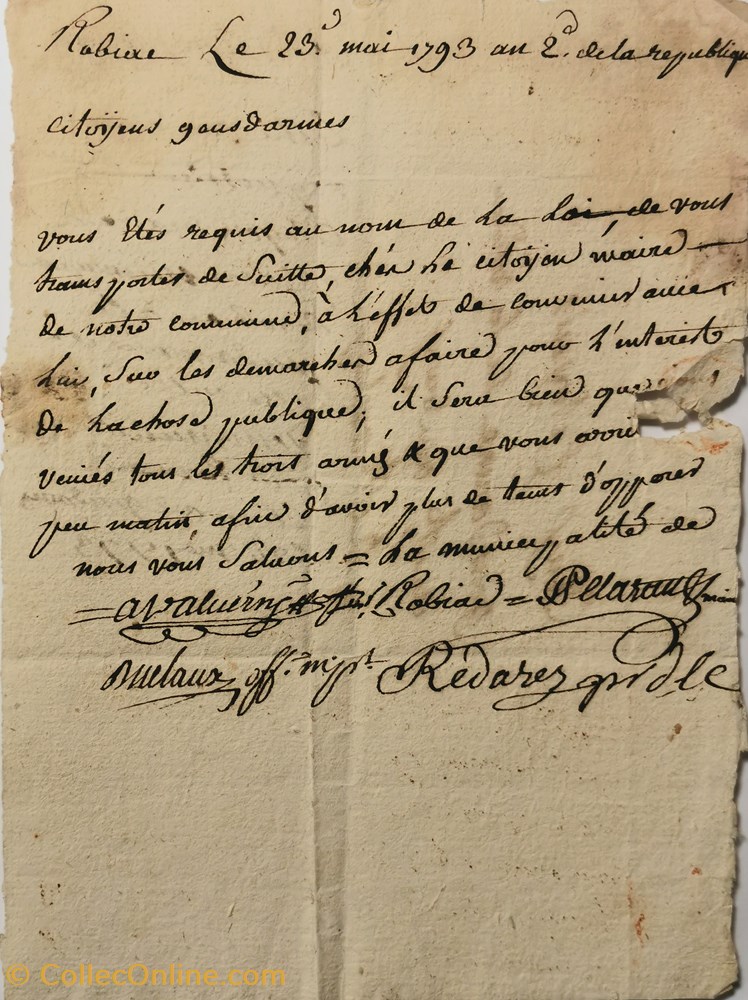 Robiac Le 23.e mai 1793 an 2.d de la republique
citoÿens gensdarmes
vous étés requis au nom de La Loi, de vous
transporter de Suitte, chés Le citoÿen maire
de notre commune, à L'effet de convenir avec
Lui, Sur les demarches a faire pour L'interest
de La chose publique, il Sera bien que vous
veniés tous les trois armés & que vous
peu matin, afin d'avoir plus de tems d'opperer
nous vous Saluons = La municipalité de
= Robiac =
off. mpal Rédarez
© CollecOnline.com